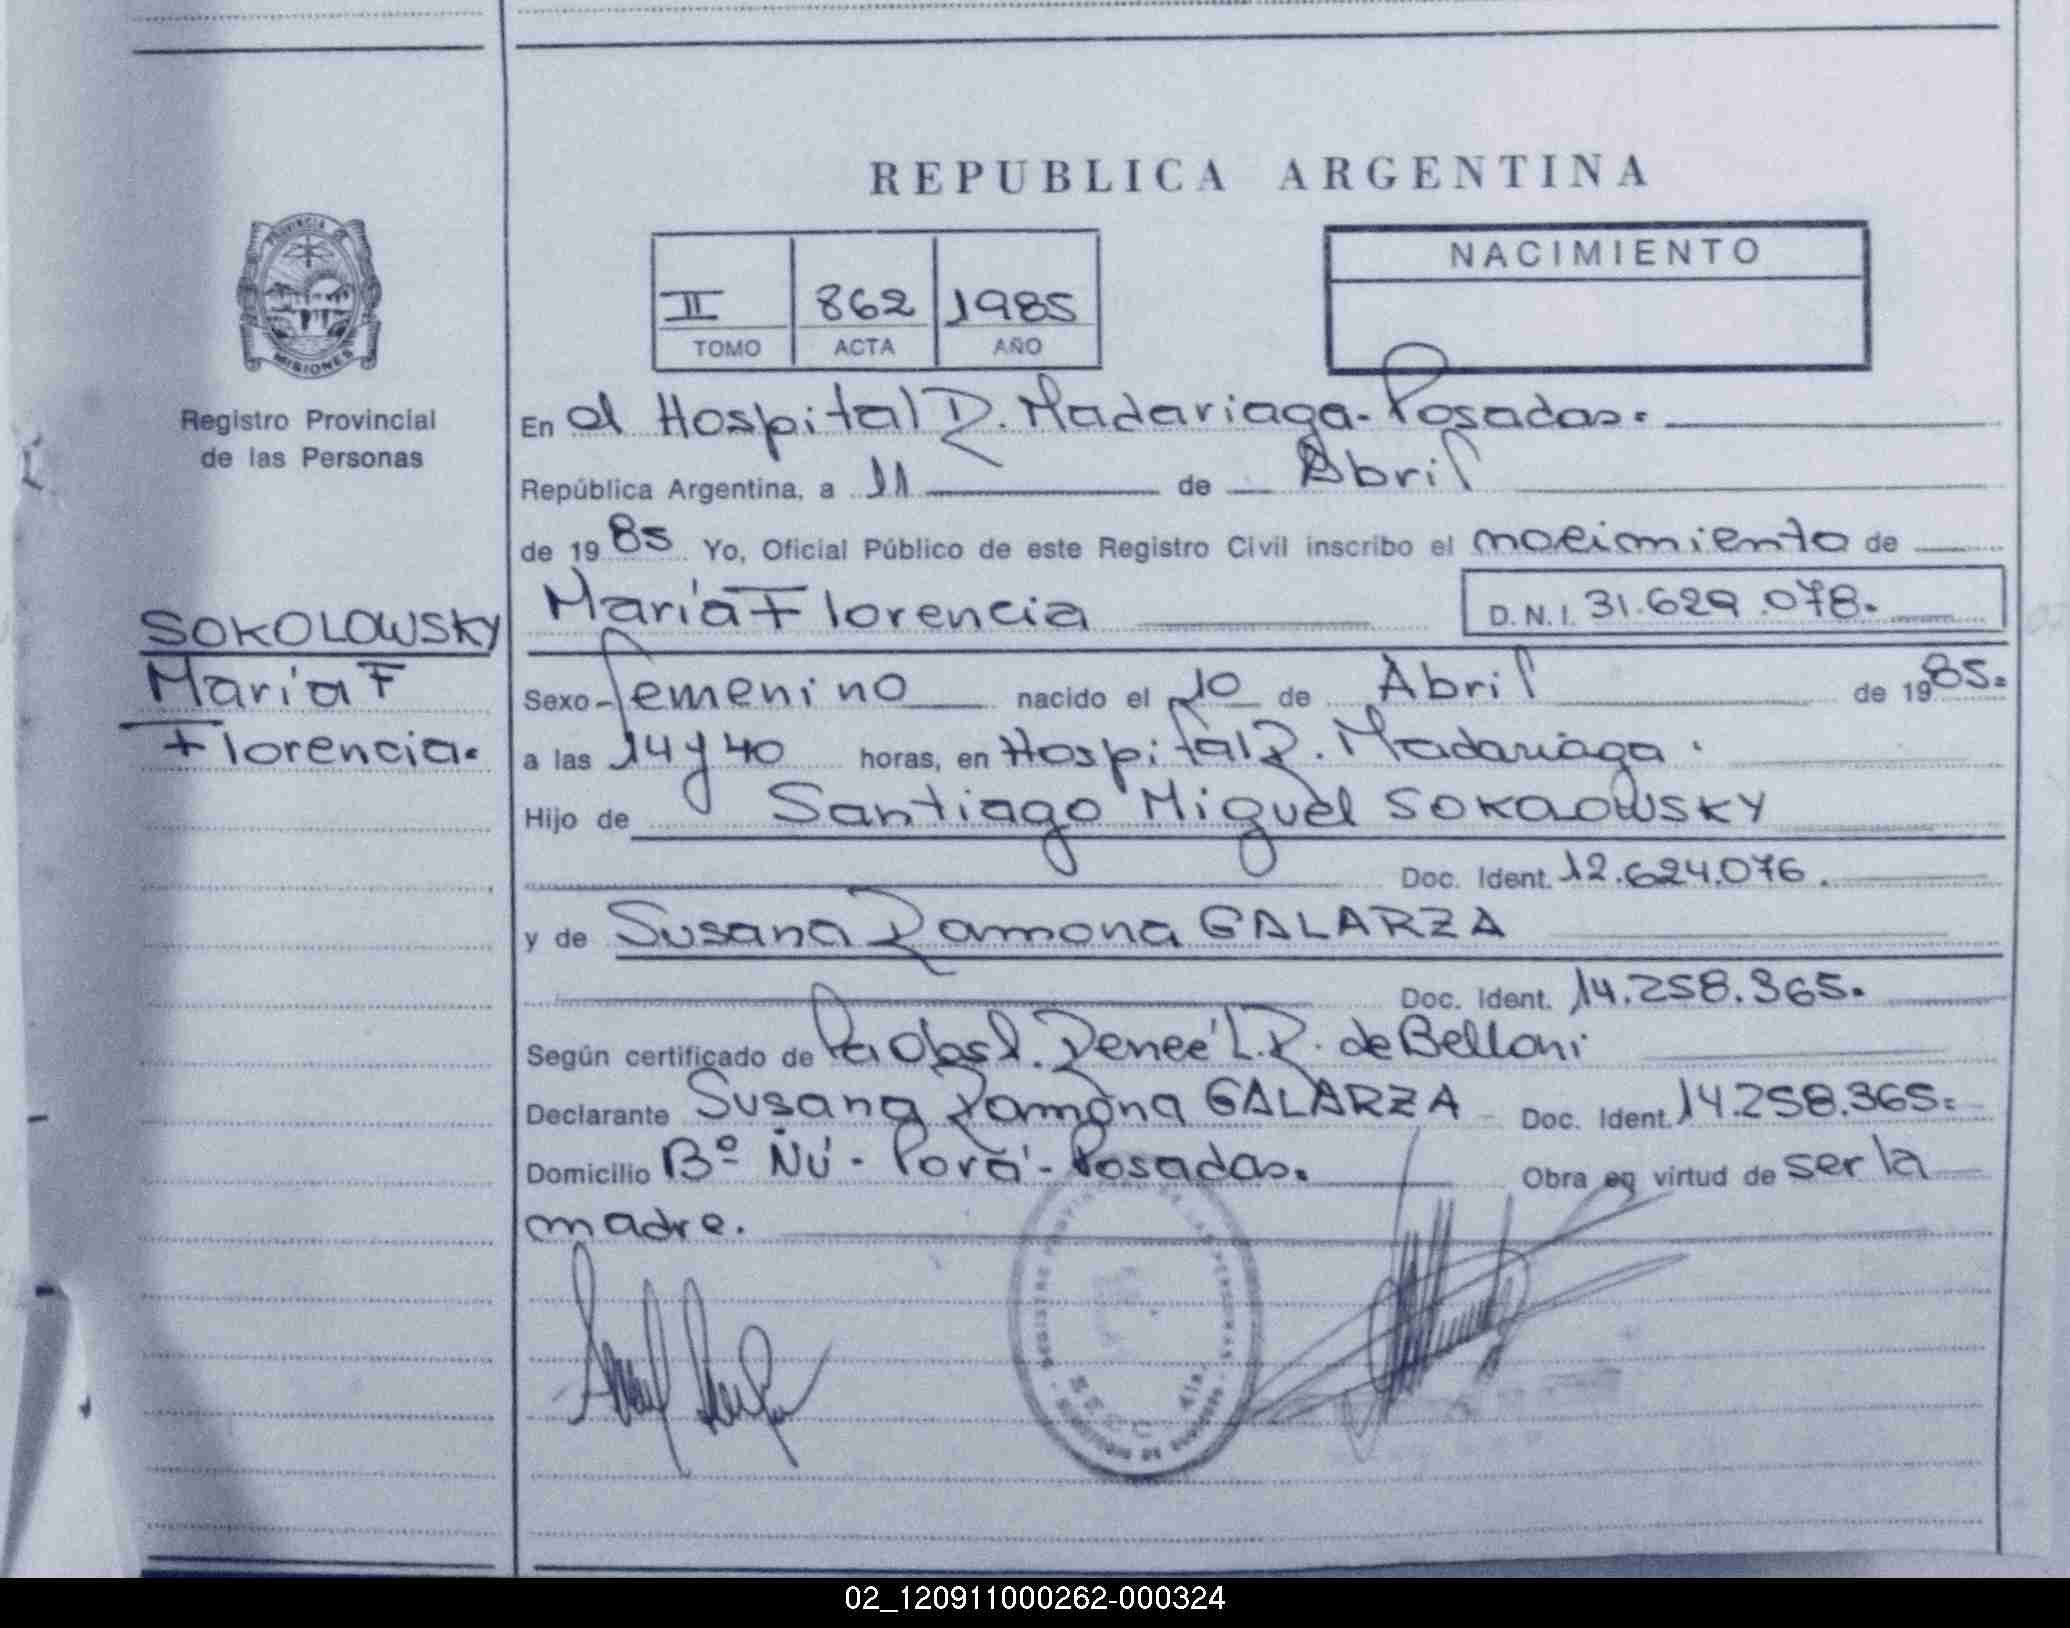 REPUBLICA ARGENTINA
PROVINCIA DE
MISIONES
Registro Provincial
de las Personas
II 862 1985
TOMO ACTA AÑO
NACIMIENTO
En el Hospital R. Madariaga- Posadas.
República Argentina, a 11 de Abril
de 1985 Yo, Oficial Público de este Registro Civil inscribo el nacimiento de
María Florencia D.N.I. 31.629.078.
SOKOLOWSKY
María F
Florencia.
Sexo Femenino nacido el 10 de Abril de 1985.
a las 14 y 40 horas, en Hospital R. Madariaga.
Hijo de Santiago Miguel SOKOLOWSKY
Doc. Ident. 12.624.076.
y de Susana Ramona GALARZA
Doc. Ident. 14.258.365.
Según certificado de la Obst. Reneé L.R. de Belloni
Declarante Susana Ramona GALARZA Doc. Ident. 14.258.365.
Domicilio Bº Ñú - Porã - Posadas. Obra en virtud de ser la
madre.
REGISTRO PROVINCIAL DE LAS PERSONAS
02_120911000262-000324